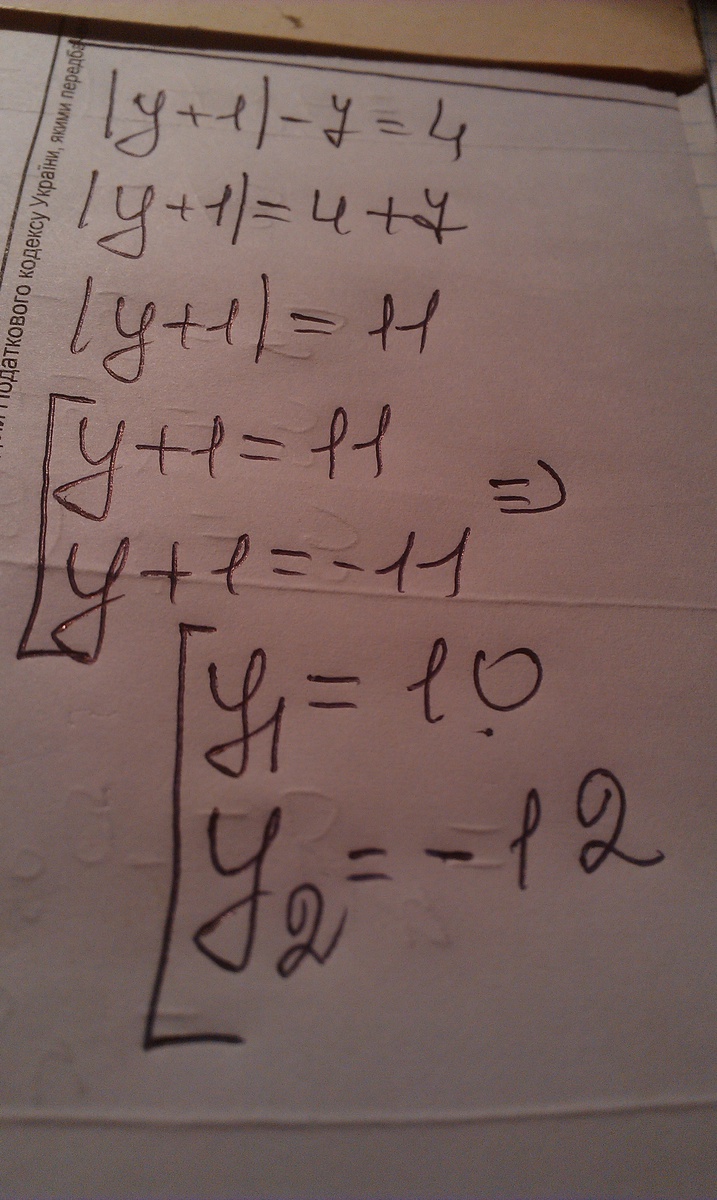 Податкового кодексу України, якими передба
|y+1|-7=4
|y+1|=4+7
|y+1|=11
[y+1=11
y+1=-11 ⇒
[y₁=10
y₂=-12